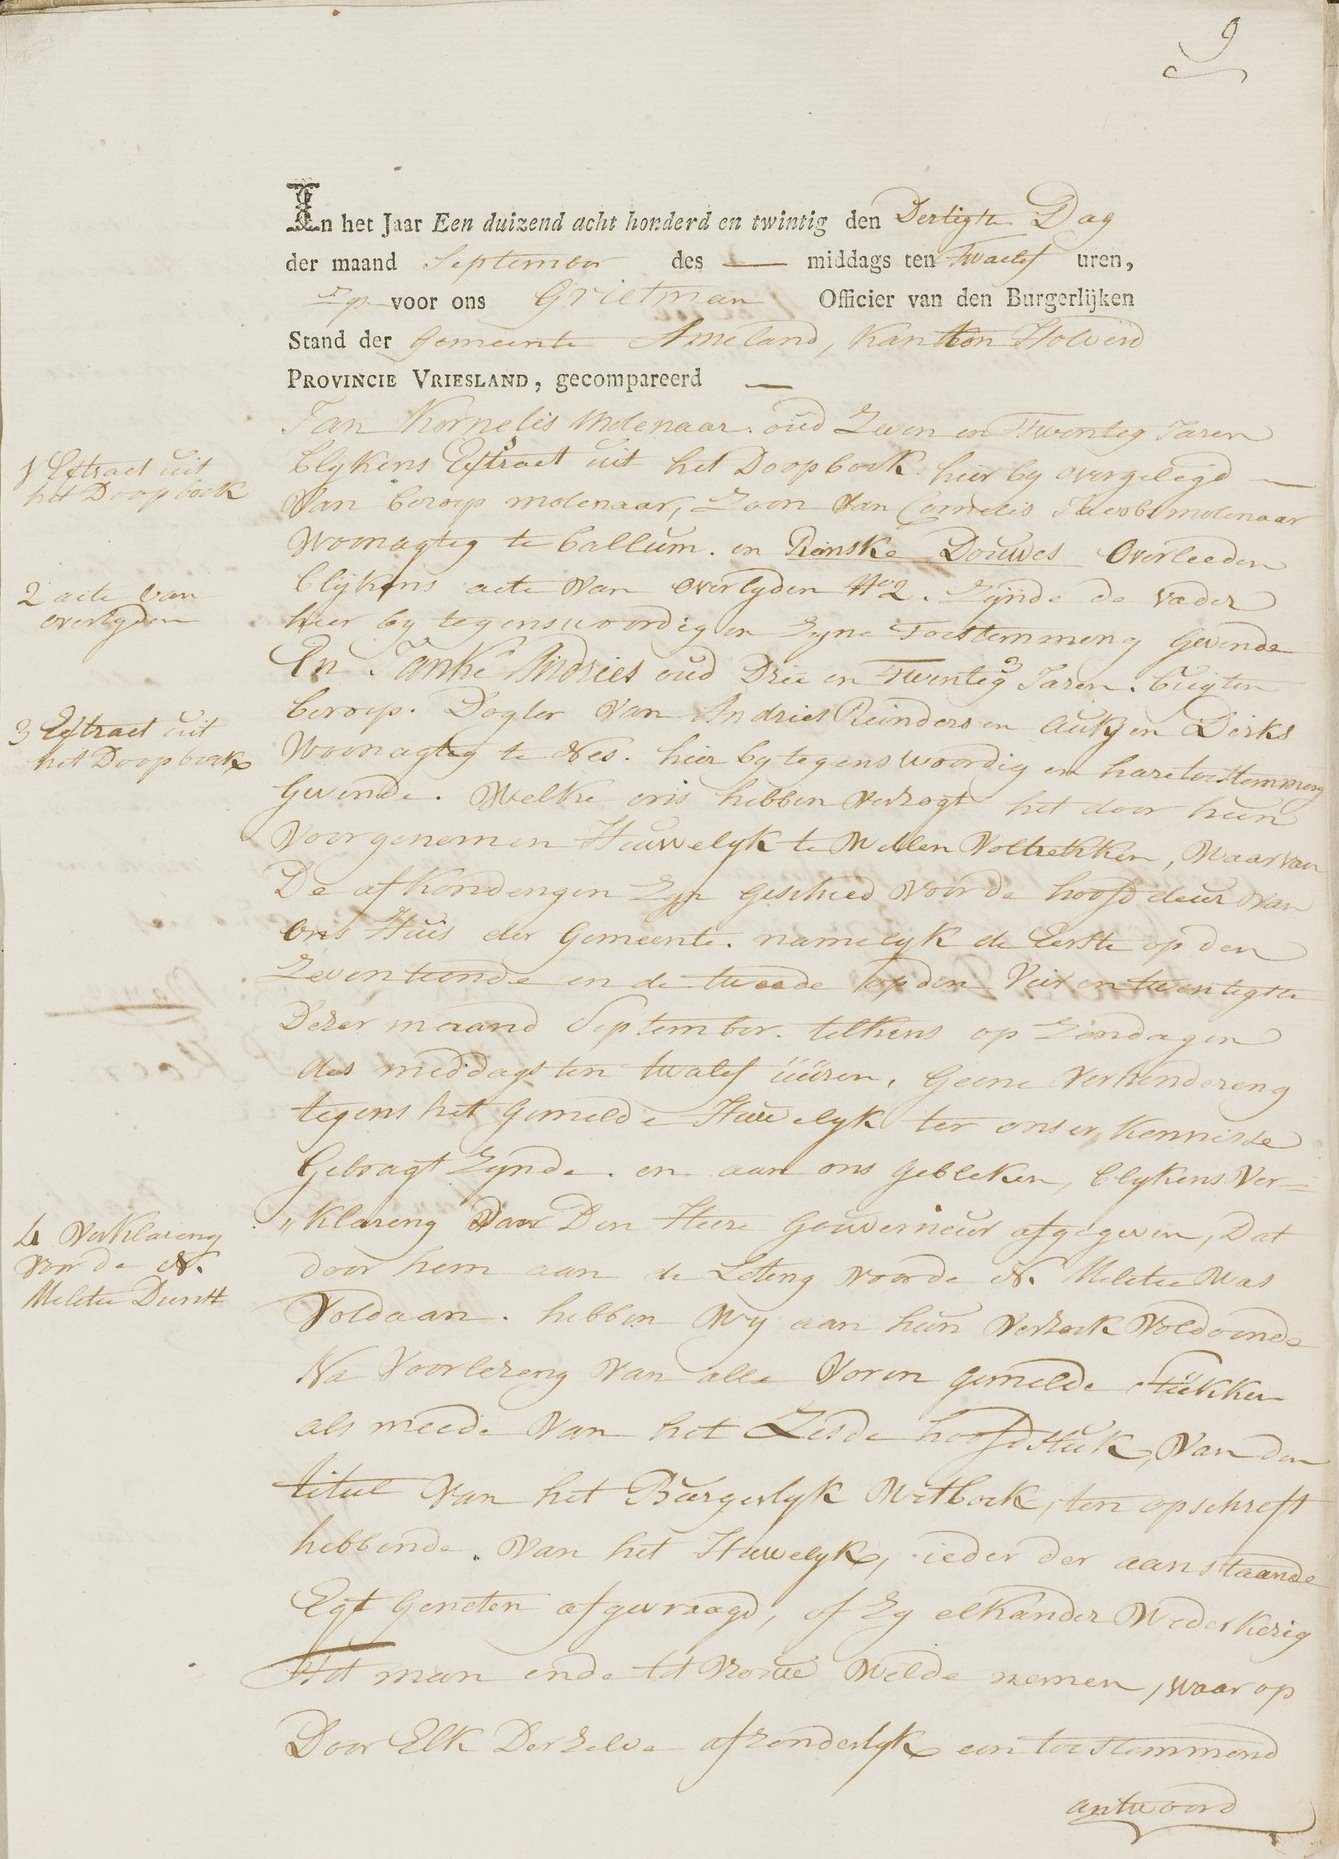 9
In het Jaar Een duizend acht honderd en twintig den Dertigste Dag
der maand September des — middags ten Twaelf uren,
Zyn voor ons Grietman Officier van den Burgerlijken
Stand der Gemeente Ameland, Kanton Holwerd
PROVINCIE VRIESLAND, gecompareerd —
Jan Kornelis Molenaar. oud Zeven en Twenteg Jaren
blykens Extract uit het Doopboek hier by overgelegd —
Van beroep molenaar, Zoon van Cornelis Jacobs molenaar
Woonagteg te Ballum. en Rinske Douwes Overleeden
blykens acte van overlyden No 2. Zynde de vader
hier by tegenswoordig en Zyne Toestemmeng Gevende
En Janke Andries oud Drie en Twenteg Jaren. buiten
beroep. Dogter van Andries Reinders en Aukjen Dirks
Woonagteg te Nes. hier by tegenswoordig en hare toestemmeng
Gevende. Welke ons hebben verzogt het door hun
Voorgenomen Huwelyk te Willen Voltrekken, waar van
De afkondengen Zyn geschied voor de hoofd deur van
Ons Huis der Gemeente. namelyk de Eerste op den
Zeventiende en de tweede op den Vier en twentegste
Dezer maand September. telkens op Zondagen
des meddags ten twalef uuren, Geene Verhendereng
tegens het Gemelde Huwelyk ter onser Kennisse
Gebragt Zynde. en aan ons gebleken, blykens Ver=
„Klareng Van Den Heere Gouverneur afgegeven, Dat
door hem aan de Loteng voor de N. Meletie Was
Voldaan. hebben Wy aan hun Verzoek Voldoende
Na Voorlezeng Van alle Voren gemelde Stukken
als meede Van het Zesde hoofdstuk, Van den
titul Van het Burgerlyk Wetboek, ten opschreft
hebbende. Van het Huwelyk, ieder der aanstaande
Egt Genoten afgevraagd, of Zy elkander Wederkerig
tot man ende tot Vrouw Wilde nemen, waar op
Door Elk Derzelve afzonderlyk een toestemmend
antwoord
1 Extract uit
het Doopboek
2 acte van
overlyden
3 Extract uit
het Doopboek
4 Verklareng
voor de N.
Meletie Dienst